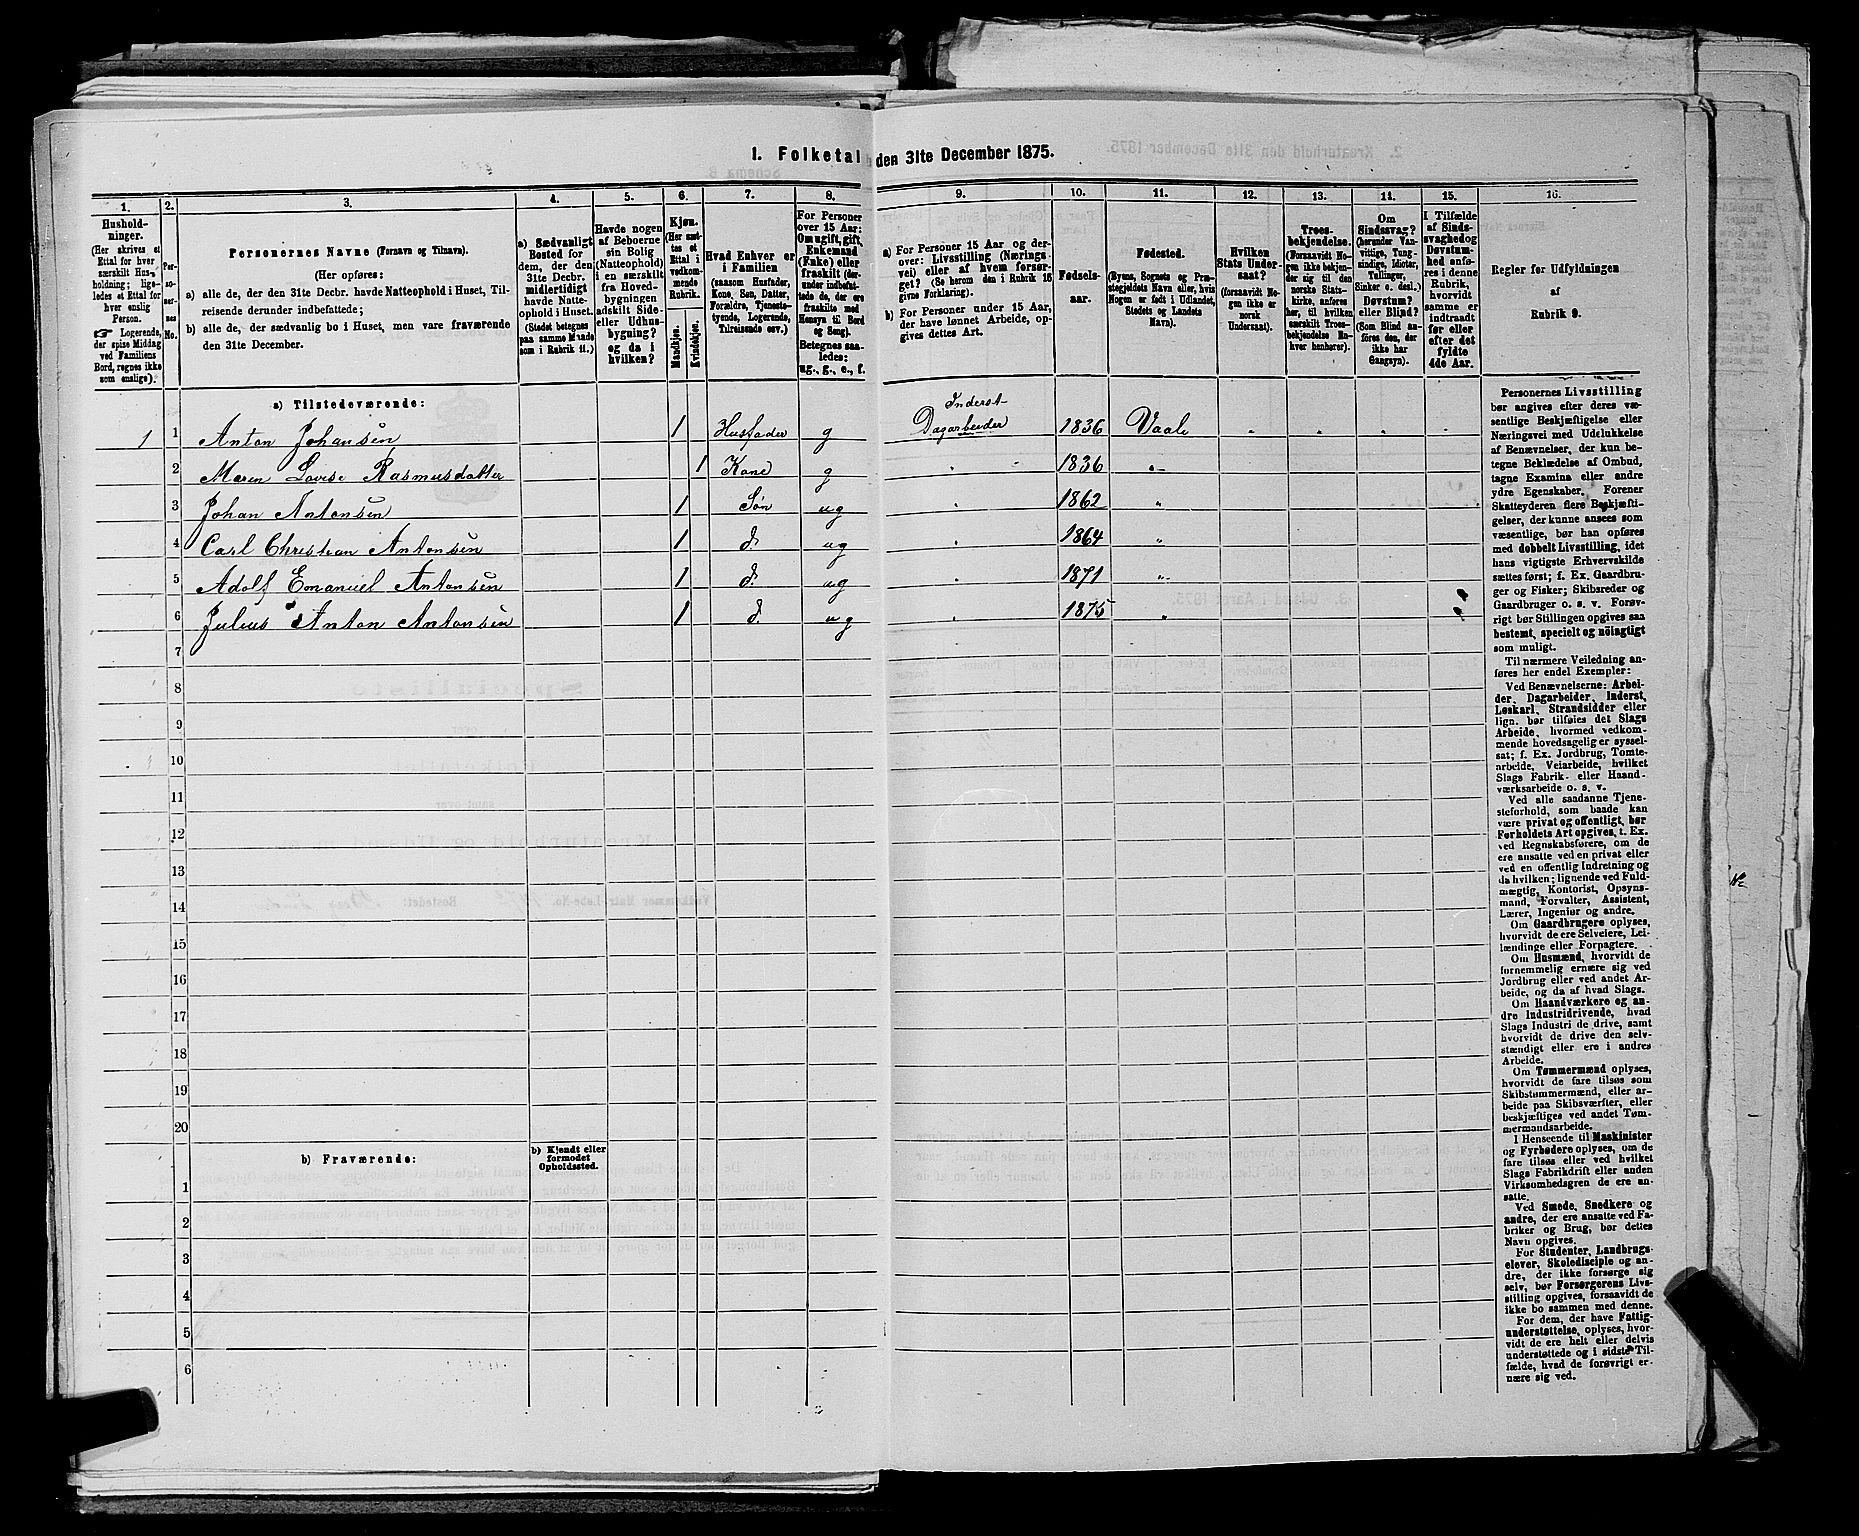 1. Folketal den 31te December 1875.
1. 2. 3. 4. 5. 6. 7. 8. 9. 10. 11. 12. 13. 14. 15. 16.
Hushold-
ninger.
(Her skrives et
Ettal for hver
særskilt Hus-
holdning; lige-
ledes et Ettal for
hver enslig
Person.
☞ Logerende,
der spise Middag
ved Familiens
Bord, regnes ikke
som enslige).
Per-
so-
ner-
nes
No.
Personernes Navne (Fornavn og Tilnavn).
(Her opføres:
a) alle de, der den 31te Decbr. havde Natteophold i Huset, Til-
reisende derunder indbefattede;
b) alle de, der sædvanlig bo i Huset, men vare fraværende
den 31te December.
a) Sædvanligt
Bosted for
dem, der den
31te Decbr.
midlertidigt
havde Natte-
ophold i Huset.
(Stedet betegnes
paa samme Maade
som i Rubrik 11.)
Havde nogen
af Beboerne
sin Bolig
(Natteophold)
i en særskilt
fra Hoved-
bygningen
adskilt Side-
eller Udhus-
bygning?
og da i
hvilken?
Kjøn.
(Her sæt-
tes et
Ettal i
vedkom-
mende
Rubrik.
Mandkjøn.
Kvindekjøn.
Hvad Enhver er
i Familien
(saasom Husfader,
Kone, Søn, Datter,
Forældre, Tjeneste-
tyende, Logerende,
Tilreisende osv.)
For Personer
over 15 Aar:
Om ugift, gift,
Enkemand
(Enke) eller
fraskilt (der-
under indbefat-
tede de, der ere
fraskilte med
Hensyn til Bord
og Seng).
Betegnes saa-
ledes:
ug., g., e., f.
a) For Personer 15 Aar og der-
over: Livsstilling (Nærings-
vei) eller af hvem forsør-
get? (Se herom den i Rubrik 16
givne Forklaring).
b) For Personer under 15 Aar,
der have lønnet Arbeide, op-
gives dettes Art.
Fødsels-
aar.
Fødested.
(Byens, Sognets og Præ-
stegjeldets Navn eller, hvis
Nogen er født i Udlandet,
Stedets og Landets
Navn).
Hvilken
Stats Under-
saat?
(forsaavidt No-
gen ikke er
norsk
Undersaat).
Troes-
bekjendelse.
(Forsaavidt No-
gen ikke bekjen-
der sig til den
norske Stats-
kirke, anføres
her, til hvilken
særskilt Troes-
bekjendelse En-
hver henhører).
Om
Sindssvag?
(herunder Van-
vittige, Tung-
sindige, Idioter,
Tullinger,
Sinker o. desl.)
Døvstum?
eller Blind?
(Som Blind an-
føres den, der
ikke har
Gangsyn).
I Tilfælde
af Sinds-
svaghed og
Døvstum-
hed anfø-
res i denne
Rubrik,
hvorvidt
samme er
indtraadt
før eller
efter det
fyldte
4de Aar.
Regler for Udfyldningen
af
Rubrik 9.
a) Tilstedeværende:
1 1 Anton Johansen 1 Husfader g Inderst Dagarbeider 1836 Vaale
2 Maren Lovise Rasmusdatter 1 Kone g " 1836 "
3 Johan Antonsen 1 Søn ug " 1862 "
4 Carl Christian Antonsen 1 d. ug " 1864 "
5 Adolf Emanuel Antonsen 1 d. ug " 1871 "
6 Julius Anton Antonsen 1 d. ug " 1875 "
7
8
9
10
11
12
13
14
15
16
17
18
19
20
b) Fraværende:
b) Kjendt eller
formodet
Opholdssted.
1
2
3
4
5
6
Personernes Livsstilling
bør angives efter deres væ-
sentlige Beskjæftigelse eller
Næringsvei med Udelukkelse
af Benævnelser, der kun be-
tegne Beklædelse af Ombud,
tagne Examina eller andre
ydre Egenskaber. Forener
Skatteyderen flere Beskjæfti-
gelser, der kunne ansees som
væsentlige, bør han opføres
med dobbelt Livsstilling, idet
hans vigtigste Erhvervskilde
sættes først; f. Ex. Gaardbru-
ger og Fisker; Skibsreder og
Gaardbruger o. s. v. Forøv-
rigt bør Stillingen opgives saa
bestemt, specielt og nöiagtigt
som muligt.
Til nærmere Veiledning an-
føres her endel Exempler:
Ved Benævnelserne: Arbei-
der, Dagarbeider, Inderst,
Løskarl, Strandsidder eller
lign. bør tilføies det Slags
Arbeide, hvormed vedkom-
mende hovedsagelig er syssel-
sat; f. Ex. Jordbrug, Tømte-
arbeide, Veiarbeide, hvilket
Slags Fabrik- eller Haand-
værksarbeide o. s. v.
Ved alle saadanne Tjene-
steforhold, som baade kan
være privat og offentligt, bør
Forholdets Art opgives, t. Ex.
ved Regnskabsførere, om de
ere ansatte ved en privat eller
ved en offentlig Indretning og
da hvilken; lignende ved Fuld-
mægtig, Kontorist, Opsyns-
mand, Forvalter, Assistent,
Lærer, Ingeniør og andre.
Om Gaardbrugere oplyses,
hvorvidt de ere Selveiere, Lei-
lændinge eller Forpagtere.
Om Husmænd, hvorvidt de
fornemmelig ernære sig ved
Jordbrug eller ved andet Ar-
beide, og da af hvad Slags.
Om Haandværkere og an-
dre Industridrivende, hvad
Slags Industri de drive, samt
hvorvidt de drive den selv-
stændigt eller ere i andres
Arbeide.
Om Tømmermænd oplyses,
hvorvidt de fare tilsøs som
Skibstømmermænd, eller ar-
beide paa Skibsværfter, eller
beskjæftiges ved andet Tøm-
mermandsarbeide.
I Henseende til Maskinister
og Fyrbødere oplyses, om de
fare tilsøs eller ved hvilket
Slags Fabrikdrift eller anden
Virksomhedsgren de ere an-
satte.
Ved Smede, Snedkere og
andre, der ere ansatte ved Fa-
briker og Brug, bør dettes
Navn opgives.
For Studenter, Landbrugs-
elever, Skoledisciple og an-
dre, der ikke forsørge sig
selv, bør Forsørgerens Livs-
stilling opgives, forsaavidt de
ikke bo sammen med denne.
For dem, der have Fattig-
understøttelse, oplyses, hvor-
vidt de ere helt eller delvis
understøttede og i sidste Til-
fælde, hvad de forøvrigt er-
nære sig ved.